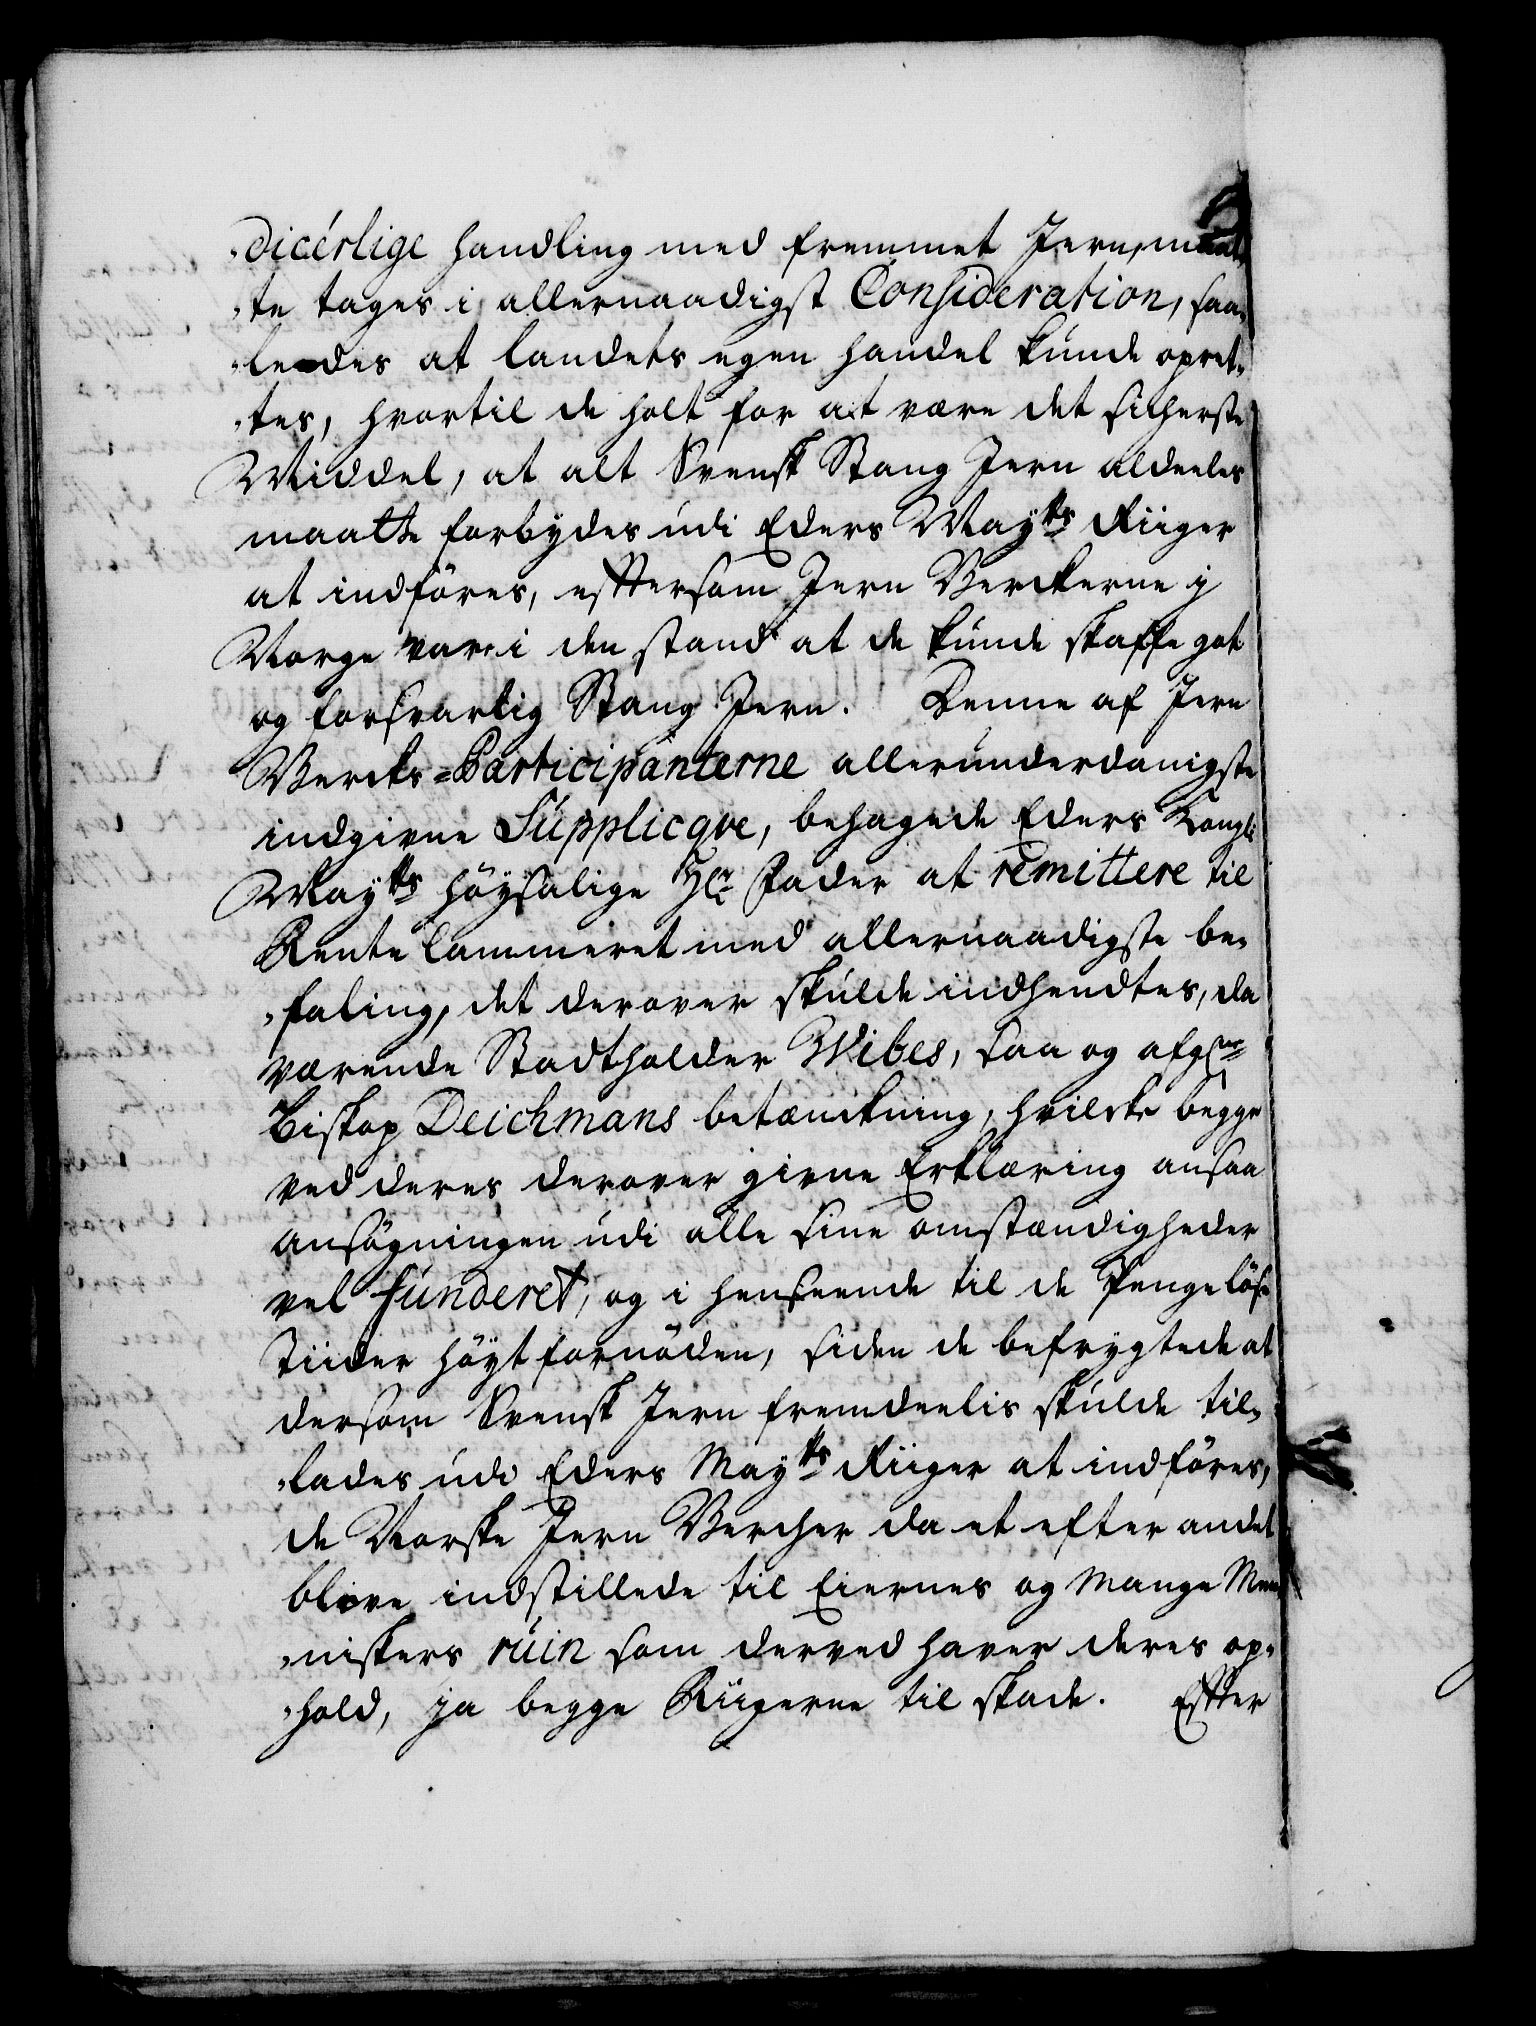 -dicérlige handling med fremmet Jern, maat-
-te tages i allernaadigst Consideration, saa-
-ledes at landets egen handel kunde opret-
-tes, hvortil de holt for at være det sicherste
Middel, at alt Svensk Stang Jern aldeeles
maatte forbydes udi Eders Maÿts Riiger
at indføres, efftersom Jern Werckerne i
Norge var i den stand at de kunde skaffe got
og forsvarlig Stang Jern. Denne af Jern
Wercks-Participanterne allerunderdanigste
indgivne Supplicqve, behagede Eders Kongl:
Mayts høysalige Hr Fader at remittere til
Rente Cammeret med allernaadigste be-
-faling, det derover skulde indhendtes, da
værende Stadtholder Wibes, saa og afgne
Biskop Deichmans betænckning, hvilcke begge
ved deres derover givne Erklæring ansaa
ansøgningen udi alle sine omstændigheder
vel funderet, og i henseende til de Pengeløse
Tiider høyt fornøden, siden de befrygtede at
dersom Svensk Jern fremdeelis skulde til-
-lades udi Eders Mayts Riiger at indføres,
de Norske Jern Wercher da et efter andet
blive indstillede til Eiernes og mange Men-
-niskers ruin som derved haver deres op-
-hold, ja begge Riigerne til skade. Effter